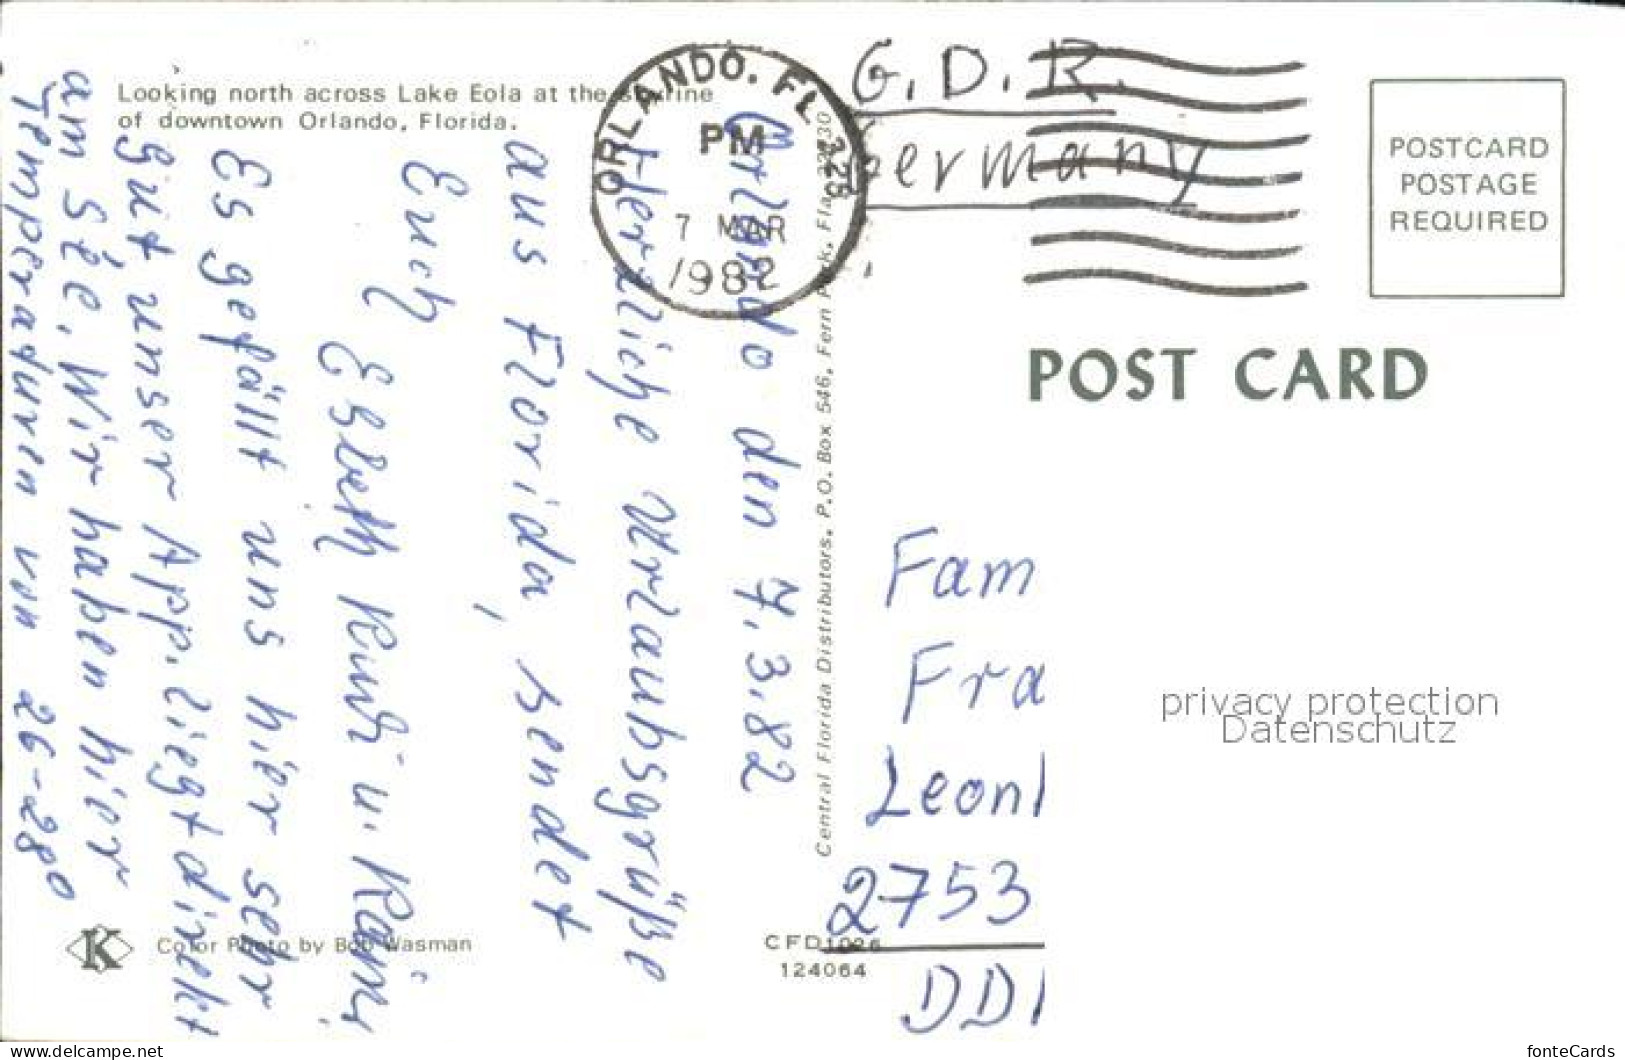 Looking north across Lake Eola at the skyline
of downtown Orlando, Florida.
ORLANDO, FL 328
PM
7 MAR
1982
G.D.R.
Germany
POSTCARD
POSTAGE
REQUIRED
POST CARD
Orlando den 7.3.82
Herzliche Urlaubsgrüße
aus Florida, sendet
Euch
Elsbeth
Es gefällt uns hier sehr
gut, unser App. liegt direkt
am See. Wir haben hier
Temperaduren von 26-28°
Central Florida Distributors, P.O. Box 546, Fern Park, Fla. 32730
Fam
Fra
Leonl
2753
DD
privacy protection
Datenschutz
K
Color Photo by Bob Wasman
CFD1026
124064
www.delcampe.net
fonteCards